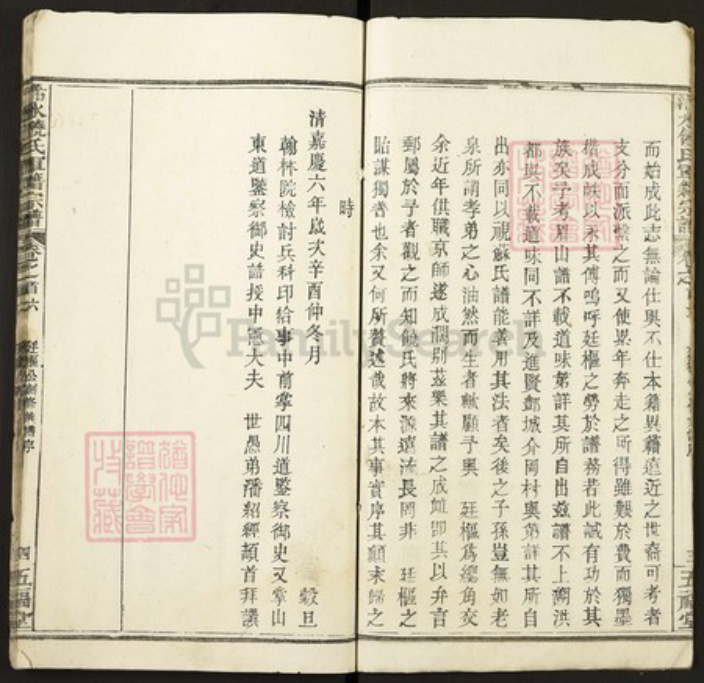 而始成此志無論仕與不仕本籍異籍遠近之世裔可考者
支分而派繫之而又使累年奔走之所得雖艱於費而獨墨
楷成帙以永其傳嗚呼廷樞之勞於譜務者此誠有功於其
族矣予考眉山譜不載道味第詳其所自出茲譜不上溯洪
都與不載道味同不詳及進賢鄷城介岡村與第詳其所自
出亦同以視蘇氏譜能善用其法者矣後之子孫豈無如老
泉所謂孝弟之心油然而生者歟顧予與 廷樞為總角交
余近年供職京師遂成濶別茲樂其譜之成郵即其以弁言
郵屬於予者觀之而知饒氏將來源遠流長罔非 廷樞之
貽謀獨善也余又何所贅述哉故本其事實序其顛末歸之
時
清嘉慶六年歲次辛酉仲冬月 穀旦
翰林院檢討兵科印給事中前掌四川道鑒察御史又掌山
東道鑒察御史誥授中憲大夫 世愚弟潘紹經頓首拜譔
水饒氏重譜宗譜
卷之首六
四 五福堂
五福堂
FamilySearch